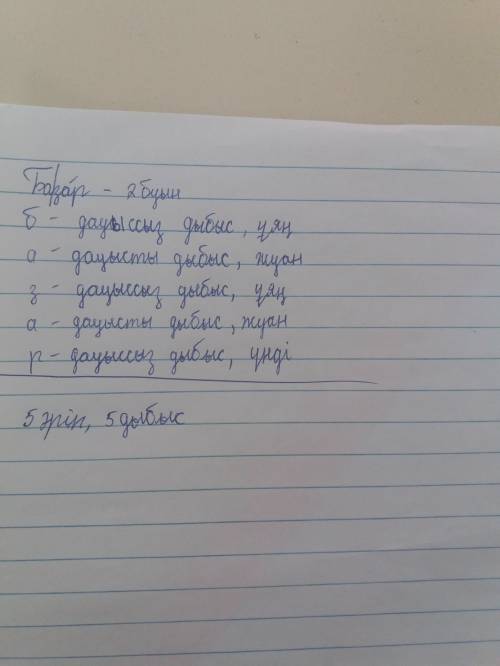 Ба/за́р - 2 буын
б - дауыссыз дыбыс, ұяң
а - дауысты дыбыс, жуан
з - дауыссыз дыбыс, ұяң
а - дауысты дыбыс, жуан
р - дауыссыз дыбыс, үнді
5 әріп, 5 дыбыс